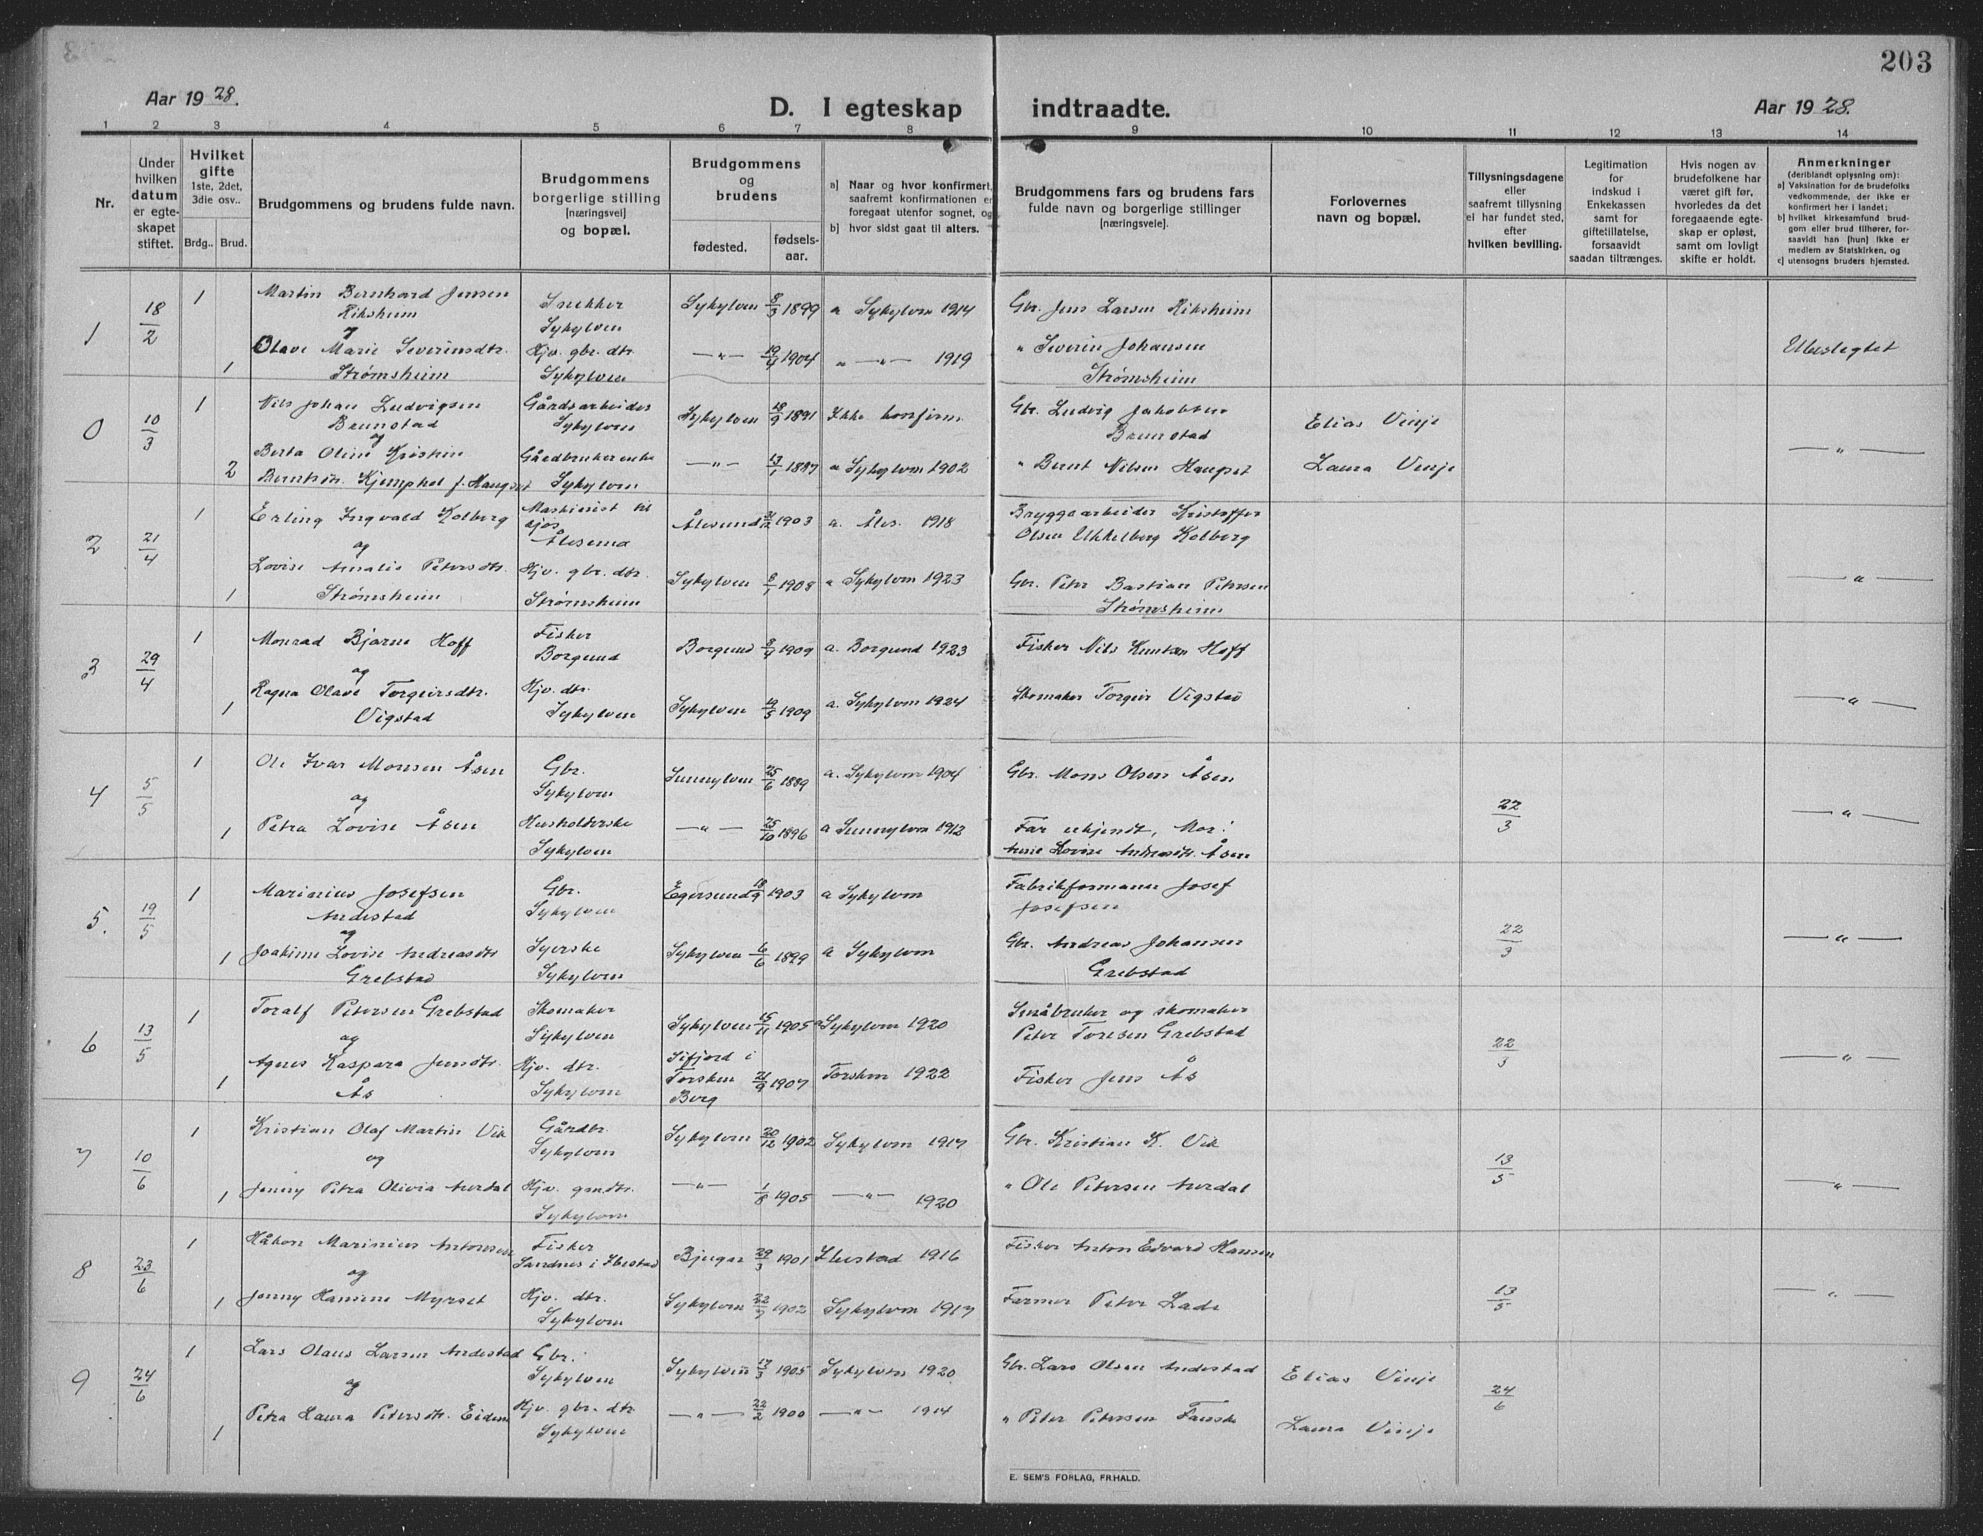 203
Aar 1928.
D. I egteskap indtraadte.
Aar 1928.
1 2 3 4 5 6 7 8 9 10 11 12 13 14
Nr.
Under hvilken datum er egte-skapet stiftet.
Hvilket gifte 1ste, 2det, 3die osv..
Brdg.. Brud.
Brudgommens og brudens fulde navn.
Brudgommens borgerlige stilling [næringsvei] og bopæl.
Brudgommens og brudens
fødested.
fødsels-aar.
a) Naar og hvor konfirmert, saafremt konfirmationen er foregaat utenfor sognet, og
b) hvor sidst gaat til alters.
Brudgommens fars og brudens fars fulde navn og borgerlige stillinger [næringsveie].
Forlovernes navn og bopæl.
Tillysningsdagene eller saafremt tillysning ei har fundet sted, efter hvilken bevilling.
Legitimation for indskud i Enkekassen samt for giftetillatelse, forsaavidt saadan tiltrænges.
Hvis nogen av brudefolkene har været gift før, hvorledes da det foregaaende egte-skap er opløst, samt om lovligt skifte er holdt.
Anmerkninger (deriblandt oplysning om):
a) Vaksination for de brudefolks vedkommende, der ikke er konfirmert her i landet;
b) hvilket kirkesamfund brud-gom eller brud tilhører, for-saavidt han [hun] ikke er medlem av Statskirken, og
c) utensogns bruders hjemsted.
1 18/2 1 Martin Bernhard Jensen Riksheim Snekker Sykylven Sykylven 8/3 1899 a Sykylven 1914 Gbr. Jens Larsen Riksheim
og
1 Olave Marie Severinsdtr. Strømsheim Hjv. gbr. dtr. Sykylven —"— 19/4 1904 " —"— 1919 " Severin Johansen Strømsheim Ubeslegtet
0 10/3 1 Nils Johan Ludvigsen Brunstad Gårdsarbeider Sykylven Sykylven 18/9 1891 Ikke konfirm. Gbr. Ludvig Jakobsen Brunstad Elias Vinje
og
2 Berta Oline Kristine Berntsdtr. Kjemphol f. Haugset Gårdbrukerenke Sykylven —"— 13/1 1887 a Sykylven 1902 " Bernt Nilsen Haugset Laura Vinje —"—
2 21/4 1 Erling Ingvald Kolberg Maskinist til sjøs Ålesund Ålesund 1903 a. Åles. 1918 Bryggearbeider Kristoffer Olsen Ukkelberg Kolberg
og
1 Lovise Amalie Petersdtr. Strømsheim Hjv. gbr. dtr. Strømsheim Sykylven 8/1 1908 a Sykylven 1923 Gbr. Peter Bastian Petersen Strømsheim —"—
3 29/4 1 Monrad Bjarne Hoff Fisker Borgund Borgund 8/4 1909 a. Borgund 1923 Fisker Nils Knutsen Hoff
og
1 Ragna Olave Torgeirsdtr. Vigstad Hjv. dtr. Sykylven Sykylven 19/5 1909 a. Sykylven 1924 Skomaker Torgeir Vigstad —"—
4 5/5 1 Ole Ivar Monsen Åsen Gbr. Sykylven Sunnylven 25/6 1889 a. Sykylven 1904 Gbr. Mons Olsen Åsen
og
1 Petra Lovise Åsen Husholderske Sykylven —"— 25/10 1896 a Sunnylven 1912 Far ukjendt, Mor: Anne Lovise Andreasdtr. Åsen 22/3 —"—
5. 19/5 1 Marinius Josefsen Andestad Gbr. Sykylven Egersund 18/9 1903 a Sykylven Fabrikformann Josef Josefsen
og
1 Joakime Lovise Andreasdtr Grebstad Syerske Sykylven Sykylven 6/6 1899 a Sykylven Gbr. Andreas Johansen Grebstad 22/3 —"—
6 13/5 1 Toralf Petersen Grebstad Skomaker Sykylven Sykylven 15/11 1905 a Sykylven 1920 Småbruker og skomaker Peter Toresen Grebstad
og
1 Agnes Kaspara Jensdtr. Ås Hjv. dtr. Sykylven Sifjord i Torsken Berg 21/9 1907 Torsken 1922 Fisker Jens Ås 22/3 —"—
7 10/6 1 Kristian Olaf Martin Vik Gårdbr. Sykylven Sykylven 20/12 1902 Sykylven 1917 Gbr. Kristian K. Vik
og
1 Jenny Petra Olivia Aurdal Hjv. grndtr. Sykylven —"— 1/8 1905 —"— 1920 " Ole Petersen Aurdal 13/5 —"—
8 23/6 1 Håkon Marinius Antonsen Fisker Sandnes i Ibestad Bjugar 29/3 1901 Ibestad 1916 Fisker Anton Edvard Hansen
og
1 Jenny Hansine Myrset Hjv. dtr. Sykylven Sykylven 22/7 1902 Sykylven 1917 Farmer Peter Lade 13/5 —"—
9 24/6 1 Lars Olaus Larsen Andestad Gbr. Sykylven Sykylven 17/3 1905 Sykylven 1920 Gbr. Lars Olsen Andestad Elias Vinje
og
1 Petra Laura Petersdtr. Eidem Hjv. gbr. dtr. Sykylven —"— 22/2 1900 —"— 1914 " Peter Petersen Fauske Laura Vinje 24/6
E. SEM'S FORLAG, FR.HALD.